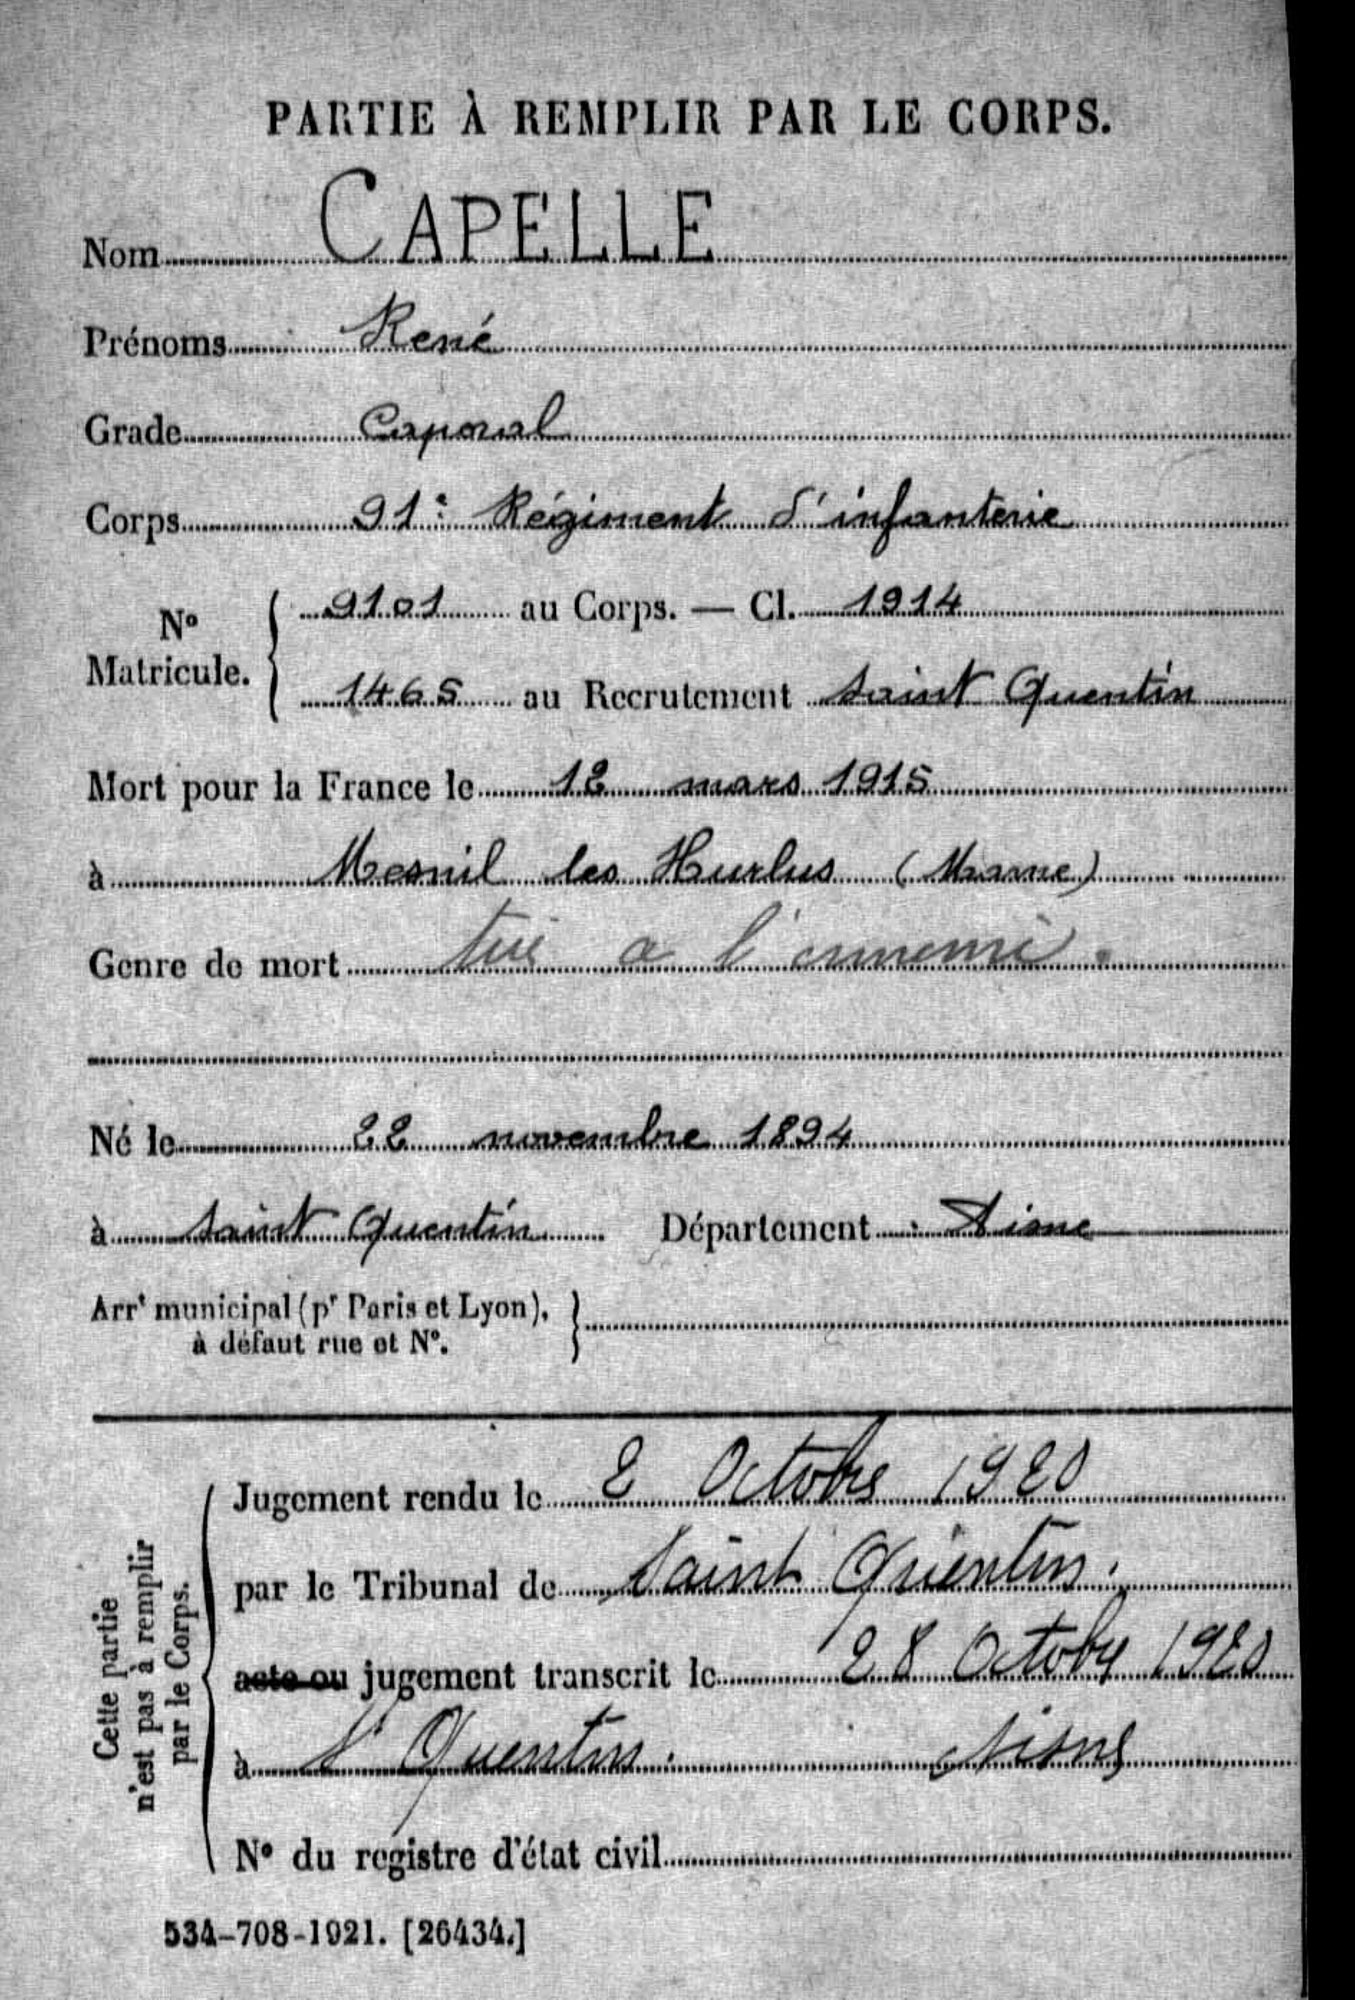 PARTIE À REMPLIR PAR LE CORPS.
Nom CAPELLE
Prénoms René
Grade Caporal
Corps 91e Régiment d'infanterie
N° Matricule. 9101 au Corps. — Cl. 1914
1465 au Recrutement Saint Quentin
Mort pour la France le 12 mars 1915
à Mesnil les Hurlus (Marne)
Genre de mort tué a l'ennemi.
Né le 22 novembre 1894
à Saint Quentin Département : Aisne
Arrt municipal (pr Paris et Lyon),
à défaut rue et N°.
Cette partie
n'est pas à remplir
par le Corps.
Jugement rendu le 2 Octobre 1920
par le Tribunal de Saint Quentin.
acte ou jugement transcrit le 28 Octobre 1920
à St Quentin. Aisne
N° du registre d'état civil
534-708-1921. [26434.]